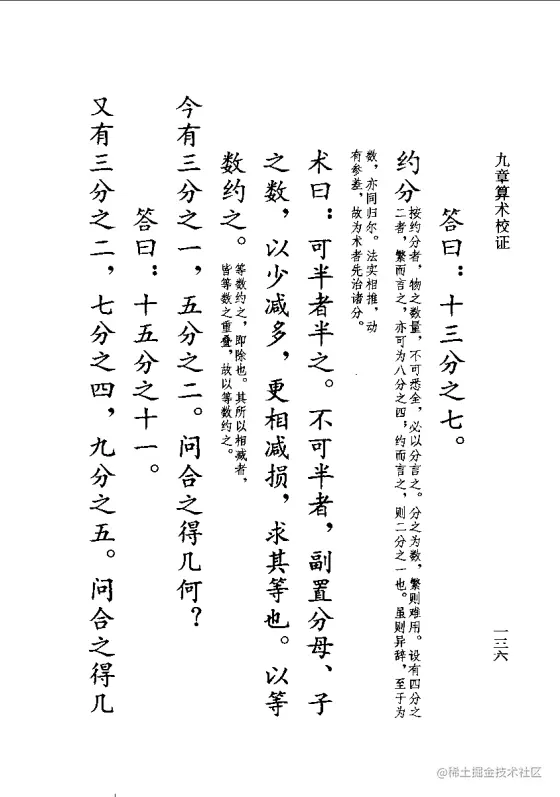 九章算术校证
一三六
答曰：十三分之七。
约分
按约分者，物之数量，不可悉全，必以分言之。分之为数，繁则难用。设有四分之
二者，繁而言之，亦可为八分之四；约而言之，则二分之一也。虽则异辞，至于为
数，亦同归尔。法实相推，动
有参差，故为术者先治诸分。
术曰：可半者半之。不可半者，副置分母、子
之数，以少减多，更相减损，求其等也。以等
数约之。
等数约之，即除也。其所以相减者，
皆等数之重叠，故以等数约之。
今有三分之一，五分之二。问合之得几何？
答曰：十五分之十一。
又有三分之二，七分之四，九分之五。问合之得几
@稀土掘金技术社区